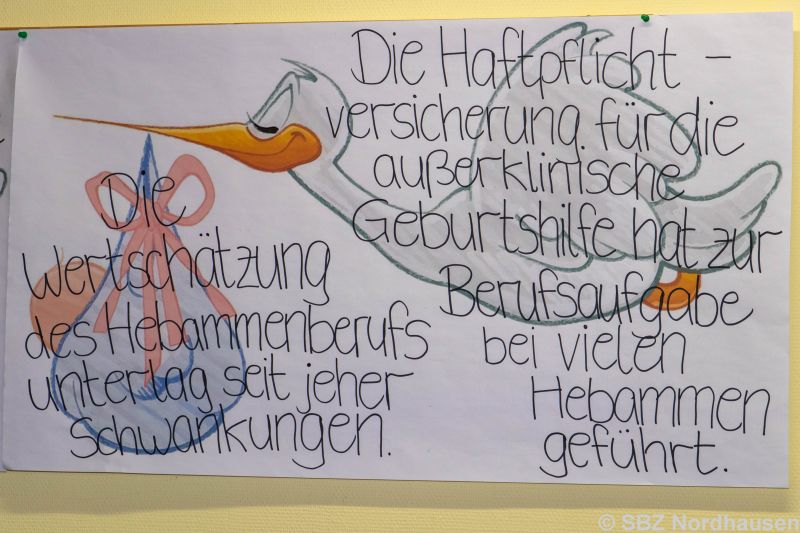 Die
Wertschätzung
des Hebammenberufs
untertag seit jeher
Schwankungen.
Die Haftpflicht -
versicherung für die
außerklinische
Geburtshilfe hat zur
Berufsaufgabe
bei vielen
Hebammen
geführt.
© SBZ Nordhausen